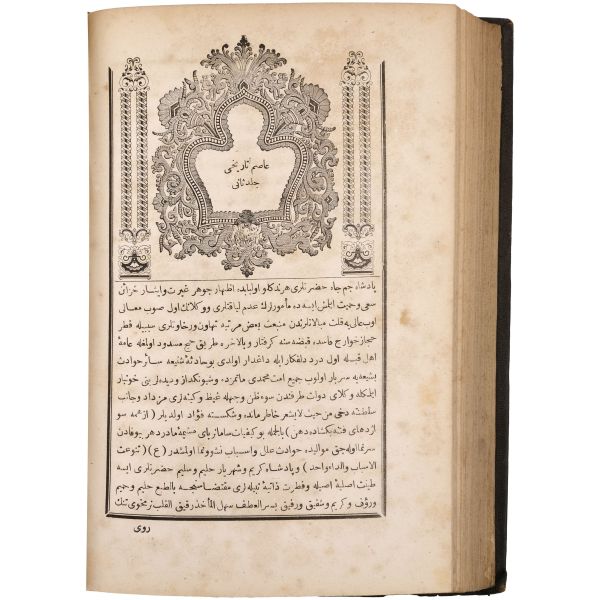 عاصم تاریخی
جلد ثانی
پادشاه جم جاه حضرتلری هر ندکلو اولیابده اظهار جوهر غیرت وایثار خزائن
سعی وحمیت ایتش ایسه ده مأمورلرک عدم لیاقتلری ووکلانک اول صوب معالی
اوب عالی به قلت مبالاتلرندن منبعث بعض مرتبه تهاون ورخاوتلری سببیله قطر
حجاز خوارج فاسده قبضه سنه کرفتار وبالآخره طریق حج مسدود اولمغله عامهٔ
اهل قبله اول درد دلفکار ایله داغدار اولدی بو حادثهٔ شنیعه سائر حوادث
بشعیه به سربار اولوب جمیع امت محمدی ماتمزده وشیونکداز ودیده لرینی خونبار
ایتمکله وکلای دولت طرفندن سوء ظن وجمله غیظ وکینه لری مزداد وجانب
سلطنته دخی من حیث لایشعر خاطرمانده وشکسته فؤاد اولدیلر (از همه سو
اژدهای فتنه بکشاده دهن) بالجمله بو کیفیات سامانزای مشیمهٔ مادر دهر بوفادن
سرنما اوله جق موالید حوادث علل واسباب نشوونما اولمشدر (ع) (تنوعت
الاسباب والداء واحد) وپادشاه کریم وشهریار حلیم وسلیم حضرتلری ایسه
طینت اصلیهٔ اصیله وفطرت ذاتیهٔ نبیله لری مقتضاسنجه بالطبع حلیم وحمیم
ورؤف وکریم وشفیق ورفیق به سریع العطف سهل المأخذ رقیق القلب نرمخوی تنک
روی